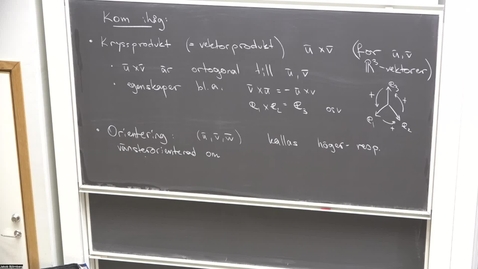 Kom ihåg:
• Kryssprodukt (= vektorprodukt) ū × v̄ (för ū, v̄ ℝ³-vektorer)
• ū × v̄ är ortogonal till ū, v̄
• egenskaper bl.a. v̄ × ū = - ū × v̄
e₁ × e₂ = e₃ osv
e₃
e₁
e₂
+
+
+
• Orientering: (ū, v̄, w̄) kallas höger- resp.
vänsterorienterad om